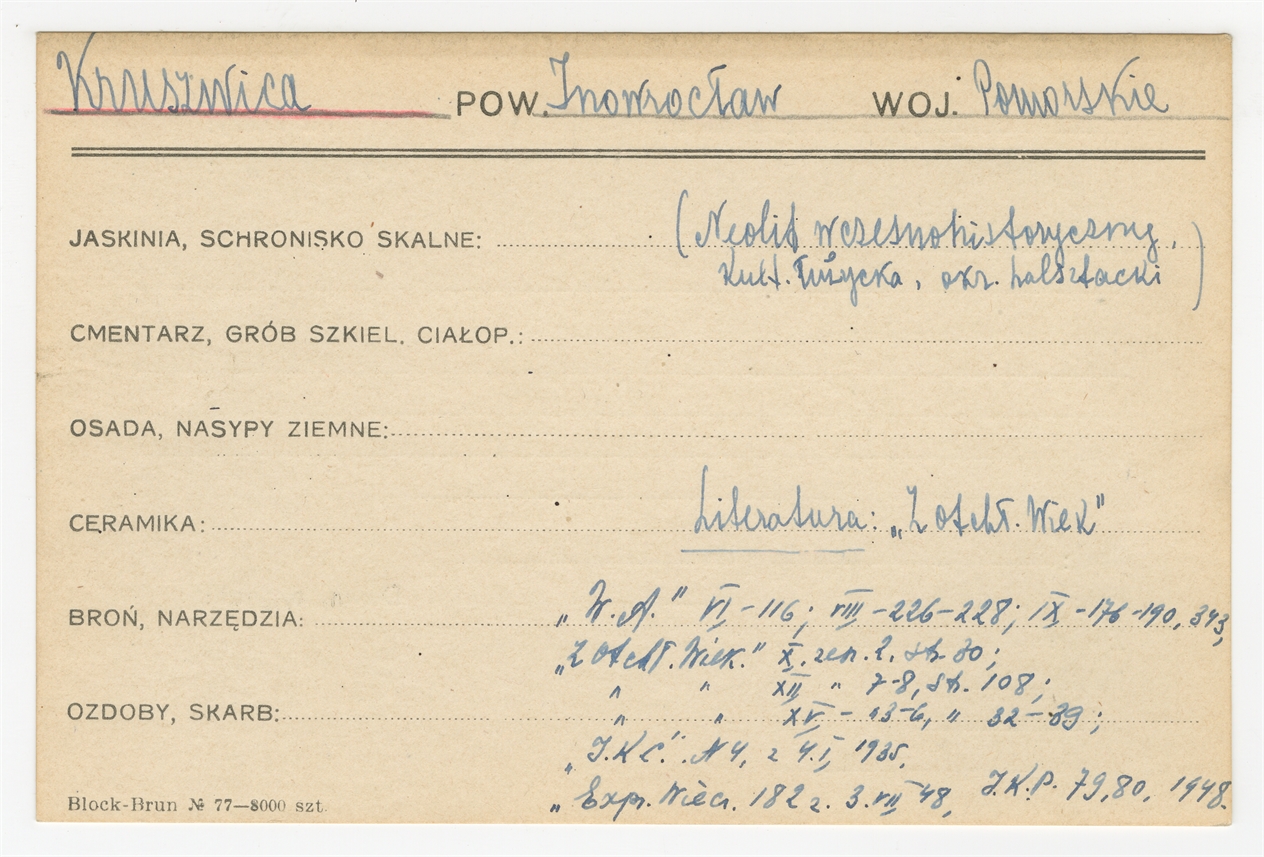 Kruszwica POW. Inowrocław WOJ. Pomorskie
JASKINIA, SCHRONISKO SKALNE: (Neolit wczesnohistoryczny,
kult. łużycka, okr. halsztacki)
CMENTARZ, GRÓB SZKIEL. CIAŁOP.:
OSADA, NASYPY ZIEMNE:
CERAMIKA: Literatura: „Z Otchł. Wiek"
BROŃ, NARZĘDZIA: „W.A." VI-116; VIII-226-228; IX-176-190, 343,
„Z Otchł. Wiek." X. zesz. 2. str. 30;
" " XII " 7-8, str. 108;
OZDOBY, SKARB: " " XV - " 32-39;
„I.K.C." N 4, z 4.I, 1935.
„Expr. Wiecz. 182 z. 3.VII 48, I.K.P. 79,80, 1948.
Block-Brun № 77—8000 szt.